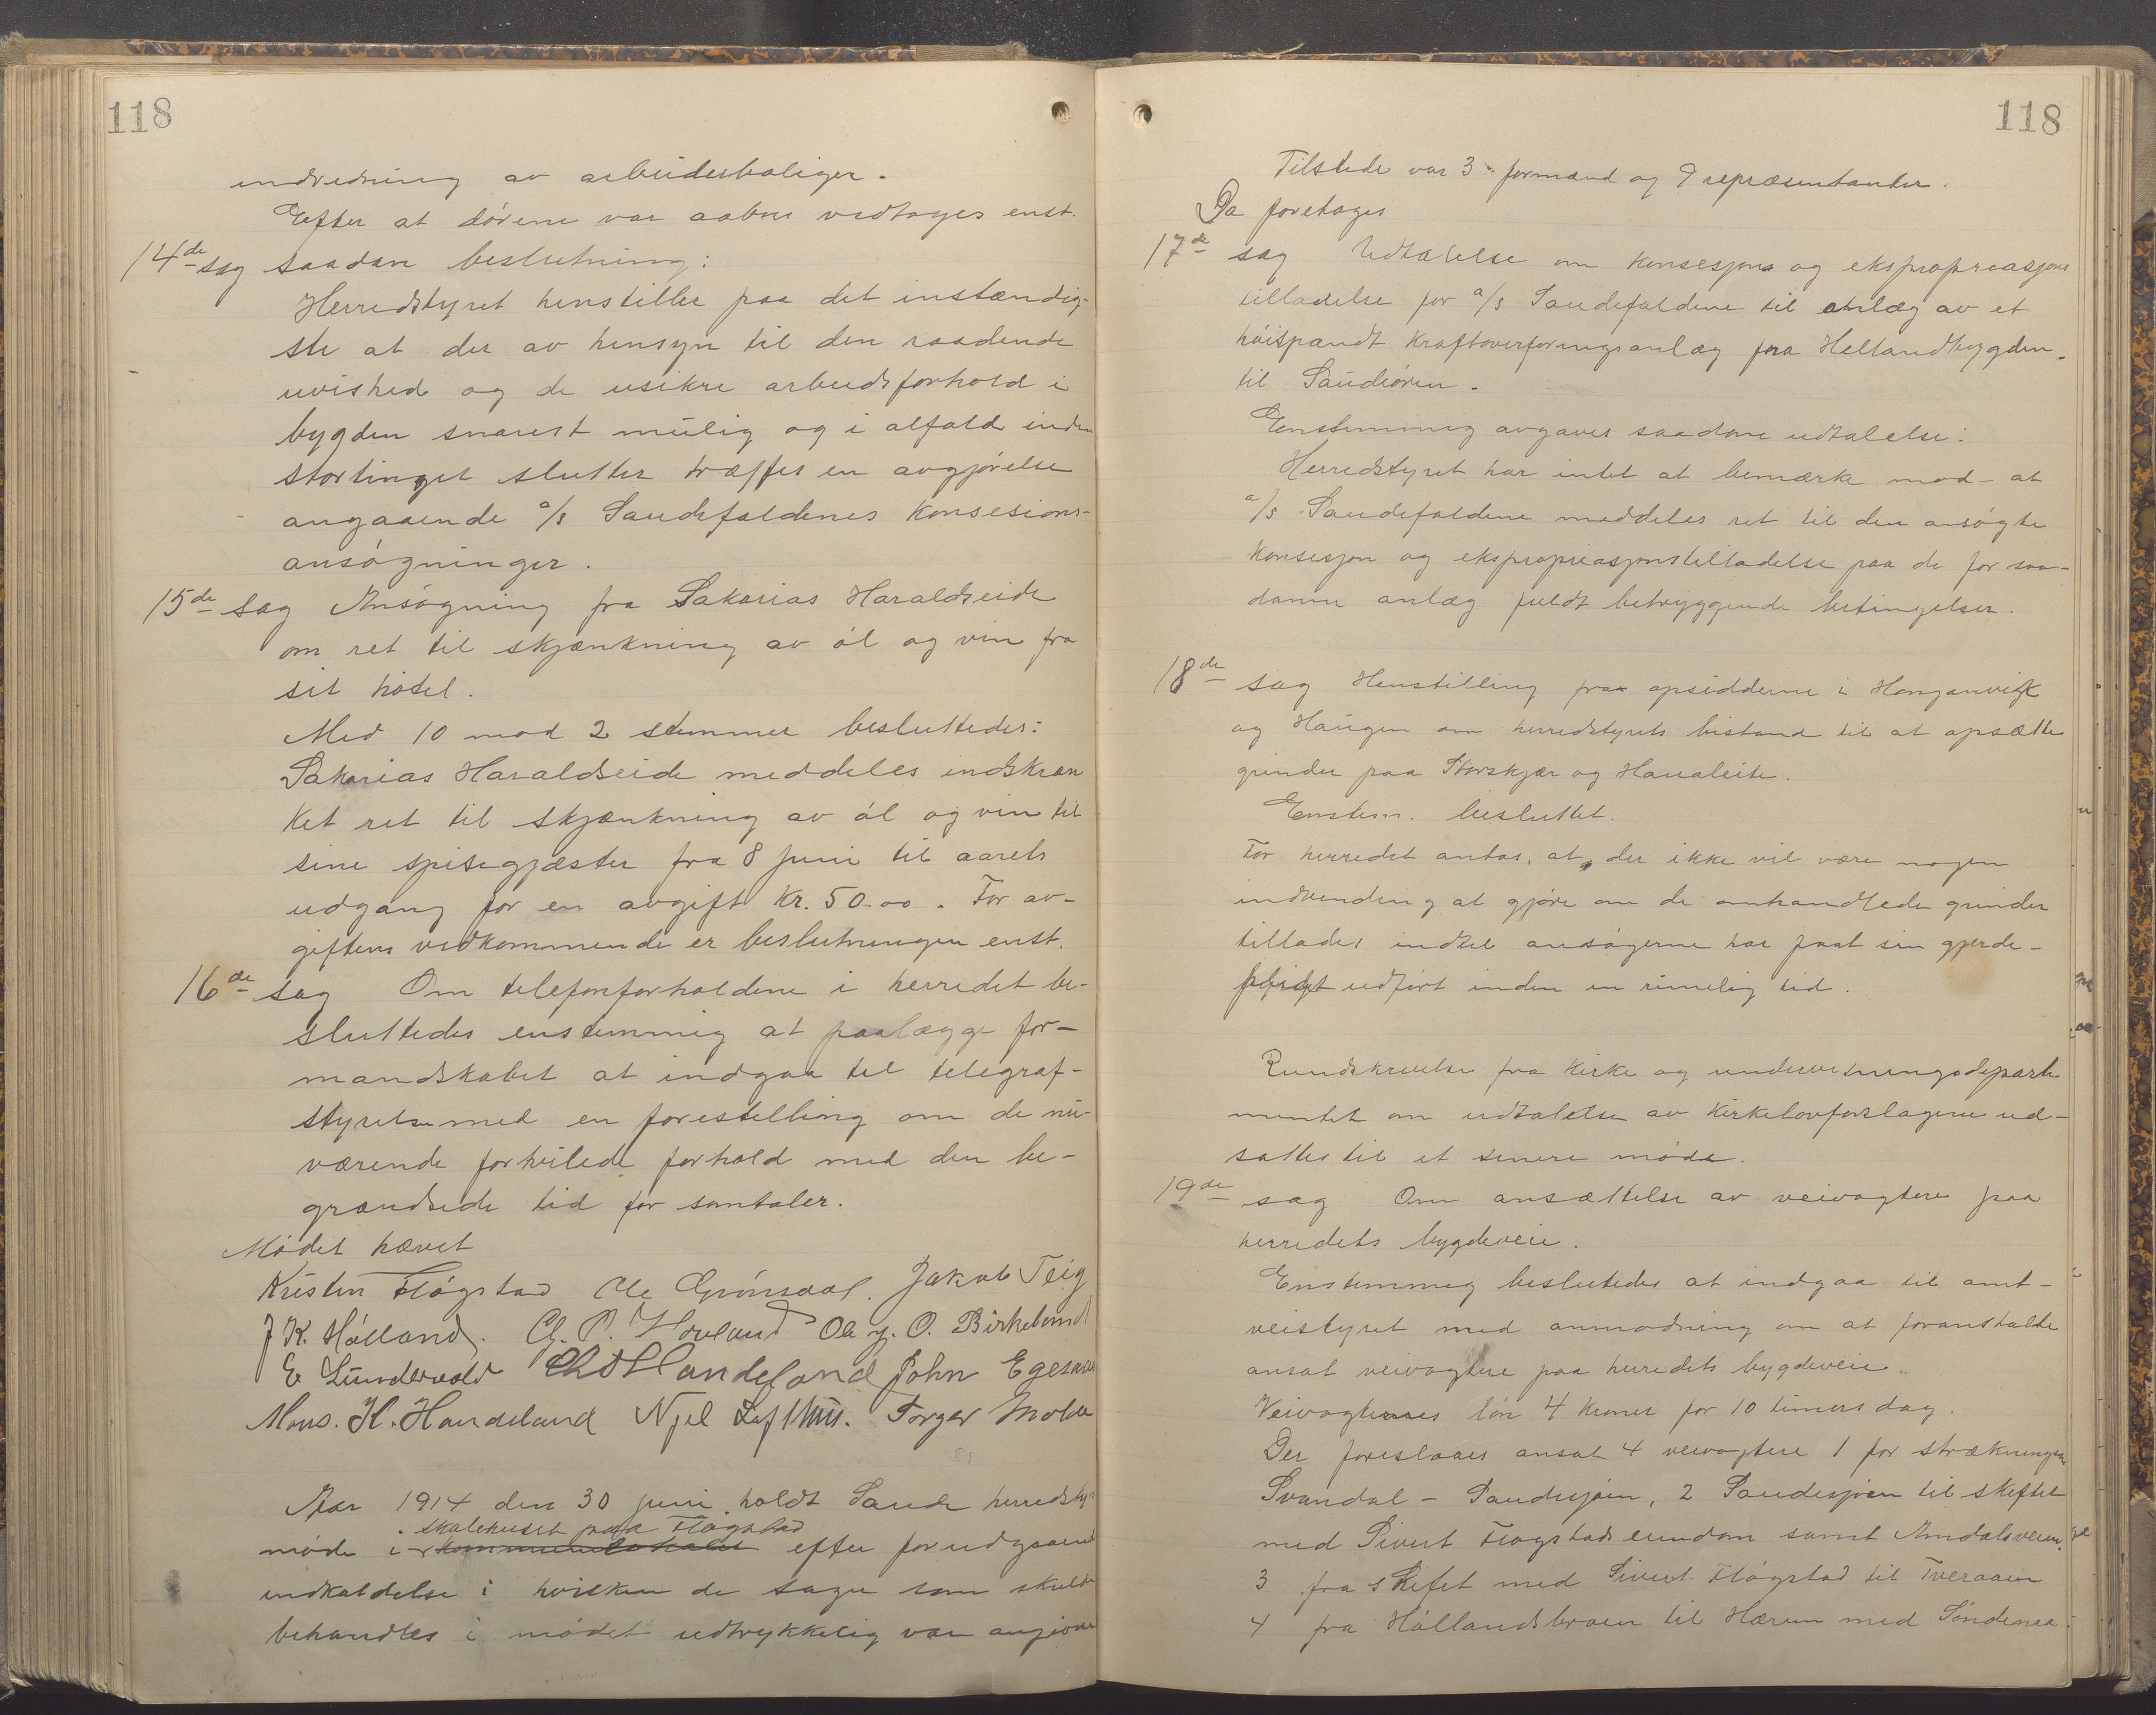 118
indredning av arbeiderboliger.
Efter at dørene var aabne vedtages enst.
14de sag saadan beslutning:
Herredstyret henstiller paa det instændig-
ste at der av hensyn til den raadende
uvished og de usikre arbeidsforhold i
bygden snarest mulig og i alfald inden
stortinget slutter træffes en avgjørelse
angaaende a/s Saudefaldenes Konsesions-
ansøgninger.
15de sag Ansøgning fra Sakarias Haraldseide
om ret til skjænkning av øl og vin fra
sit hotel.
Med 10 mod 2 stemmer besluttedes:
Sakarias Haraldseide meddeles indskræn
ket ret til skjænkning av øl og vin til
sine spisegjæster fra 8 juni til aarets
udgang for en avgift Kr. 50.00. For av-
giftens vedkommende er beslutningen enst.
16de sag Om telefonforholdene i herredet be-
sluttedes enstemmig at paalægge for-
mandskabet at indgaa til telegraf-
styret med en forestilling om de nu-
værende forhold med den be-
grændsede tid for samtaler.
Mødet hævet
Kristen Fløgstad Ole Grønsdal. Jakob Teig
J K. Hølland. Ch. P. Hovland Ole J. O. Birkeland
E Sundervold Handeland John Egesund
Mons. H. Handeland Njel Lofthus. Torger Molde
Aar 1914 den 30 juni holdt Saude herredsty
skolehuset paa Fløgstad
møde i kommunelokalet efter forudgaaende
indkaldelse i hvilken de sager som skulde
behandles i mødet udtrykkelig var angivne
118
Tilstede var 3 formænd og 9 repræsentanter.
Da foretages
17de sag Udtalelse om konsesjons og ekspropriasjons
tilladelse for a/s Saudefaldene til anlæg av et
høispændt Kraftoverføringsanlæg fra Hellandbygden
til Saudeøren.
Enstemmig avgaves saadan udtalelse:
Herredstyret har intet at bemærke mod at
a/s Saudefaldene meddeles ret til den ansøgte
Konsesjon og ekspropriasjonstilladelse paa de for saa-
danne anlæg fuldt betryggende betingelser.
18de sag Henstilling fra opsidderne i Honganvik
og Haugen om herredstyrets bistand til at opsætte
grinder paa Storskjær og Hanaleite.
Enstem. besluttet.
For herredet antas, at der ikke vil være nogen
indvending at gjøre om de omhandlede grinder
tillades indtil ansøgerne har faat sin gjerde-
pligt udført inden en rimelig tid.
Rundskrivelse fra Kirke og undervisningsdeparte
mentet om udtalelse av Kirkelovforslagene ud-
sattes til et senere møde.
19de sag Om ansættelse av veivogtere paa
herredets bygdeveie.
Enstemmig beslutedes at indgaa til amt-
veistyret med anmodning om at foranstalte
ansat veivogtere paa herredets bygdeveie.
Veivogternes løn 4 kroner for 10 timers dag.
Der foreslaaes ansat 4 veivogtere 1 for strækningen
Svandal - Saudesjøen, 2 Saudesjøen til skiftet
med Sivert Fløgstads eiendom samt Amdalsveien.
3 fra skiftet med Sivert Fløgstad til Tveraaen
4 fra Høllandsbroen til Hærum med Søndenaa